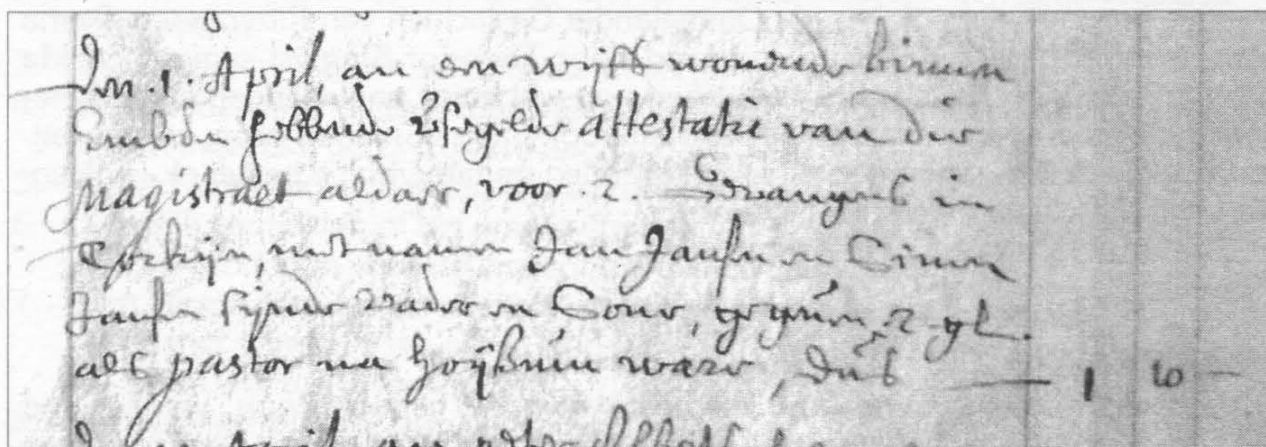 Den .1. April, an een wijff wonende binnen
Embden hebbende vsegelde attestatie van die
Magistraet aldaer, voor .2. Gevangens in
Torkijn, met namen Jan Jansen en Simen
Jansen sijnde vader en Sone, gegeven 2 gl.
als pastor na ware, dus — 1 10 —
April, an